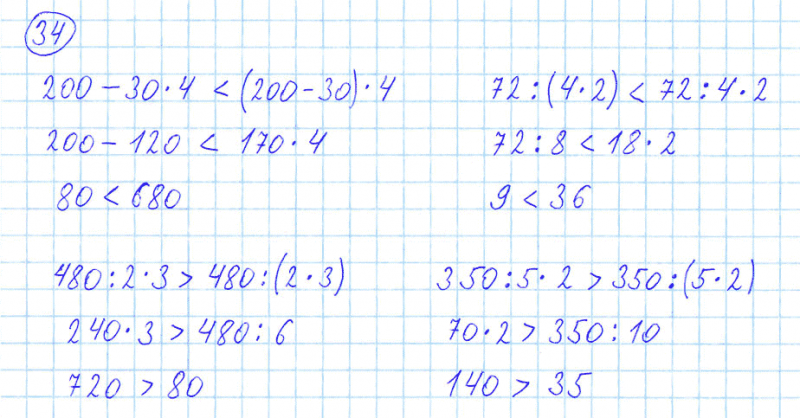 34
200 - 30 · 4 < (200 - 30) · 4
200 - 120 < 170 · 4
80 < 680
72 : (4 · 2) < 72 : 4 · 2
72 : 8 < 18 · 2
9 < 36
480 : 2 · 3 > 480 : (2 · 3)
240 · 3 > 480 : 6
720 > 80
350 : 5 · 2 > 350 : (5 · 2)
70 · 2 > 350 : 10
140 > 35